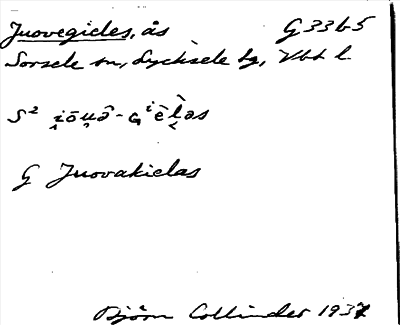 Juovegieles, ås G33b5
Sorsele sn, Lycksele lg, Vbt l
S²
G Juovakielas
Björn Collinder 1937